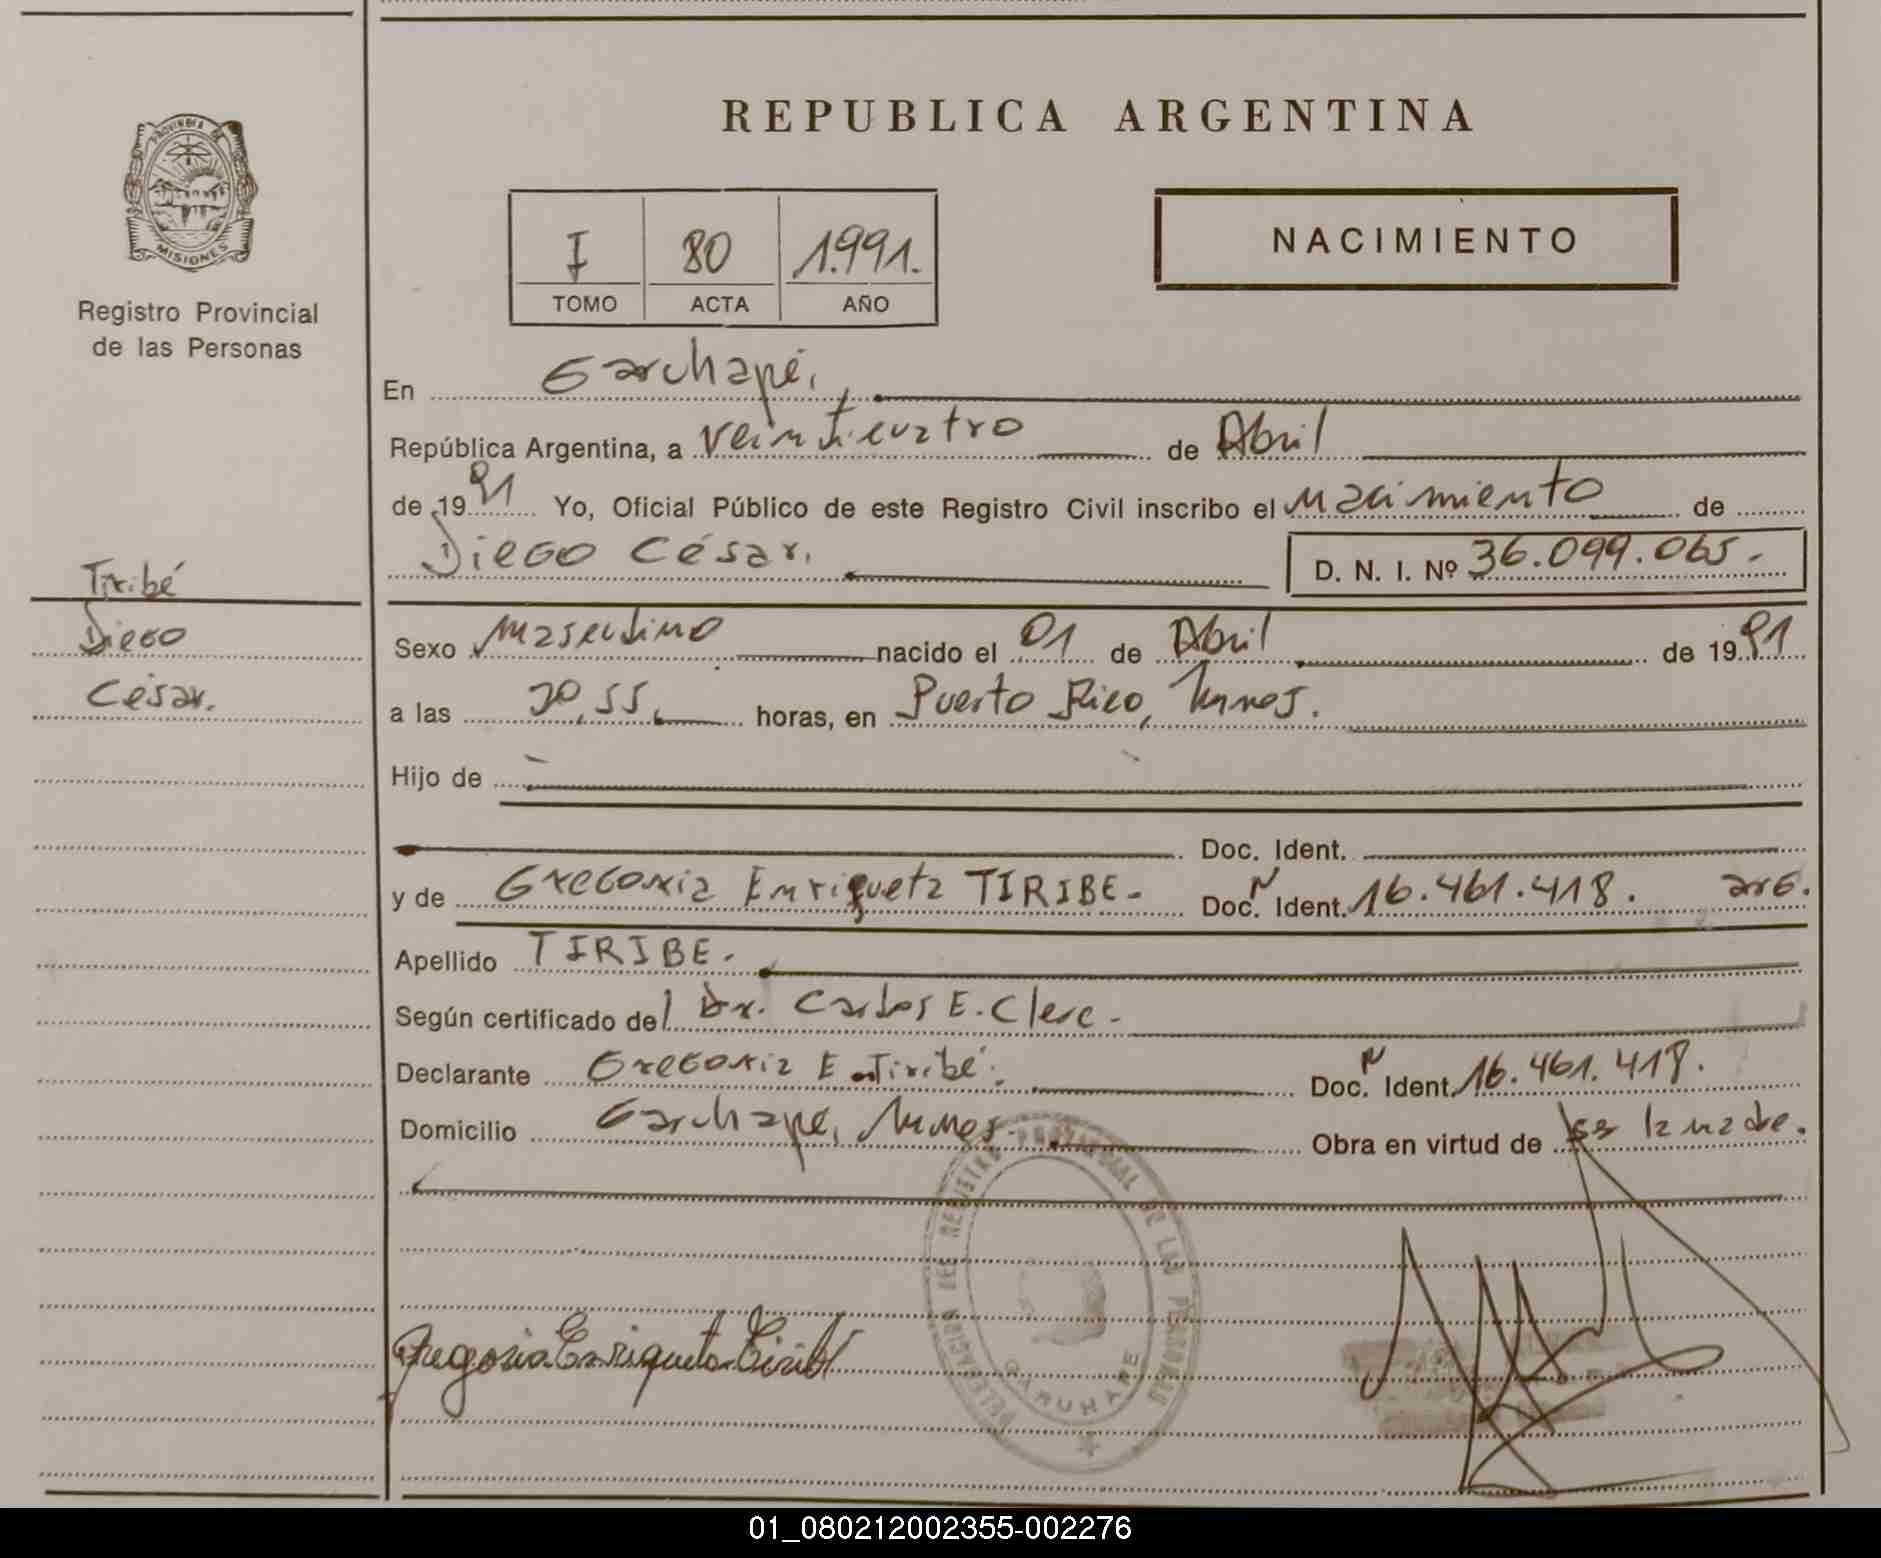 REPUBLICA ARGENTINA
PROVINCIA DE
MISIONES
Registro Provincial
de las Personas
I 80 1.991.
TOMO ACTA AÑO
NACIMIENTO
En Garuhapé,
República Argentina, a Veinticuatro de Abril
de 1991 Yo, Oficial Público de este Registro Civil inscribo el nacimiento de
Diego César. D. N. I. Nº 36.099.065.-
Tiribé
Diego
César.
Sexo Masculino nacido el 01 de Abril de 1991
a las 20,55, horas, en Puerto Rico, Mnes.
Hijo de
Doc. Ident.
y de Gregoria Enriqueta TIRIBE.- Doc. N Ident. 16.461.418. arg.
Apellido TIRIBE.-
Según certificado del Dr. Carlos E. Clerc.-
Declarante Gregoria E. Tiribé. Doc. N Ident. 16.461.418.
Domicilio Garuhapé, Mnes. Obra en virtud de ser la madre.
Gregoria Enriqueta Tiribé
DELEGACION DEL REGISTRO PROVINCIAL DE LAS PERSONAS
GARUHAPE
01_080212002355-002276